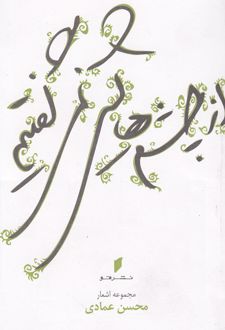 از چشم گفتیم
نشر قو
مجموعه اشعار
محسن عمادی